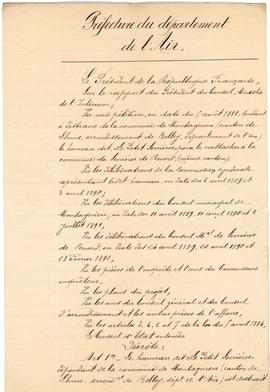 Préfecture du département
de l'Ain.
Le Président de la République Française,
Sur le rapport du Président du Conseil, Ministre
de l'Intérieur,
Vu une pétition, en date du 5 août 1888, tendant
à distraire de la commune de Montagnieu (canton de
Lhuis, arrondissement de Belley, département de l'Ain)
le hameau dit Le Petit Serrières, pour le rattacher à la
commune de Serrières de Briord (même canton),
Vu les délibérations de la Commission syndicale
représentant ledit hameau, en date des 6 avril 1879 et
avril 1890;
Vu les délibérations du Conseil municipal de
Montagnieu, en date des 11 avril 1879, 11 avril 1890 et
juillet 1891,
Vu les délibérations du Conseil Mal de Serrières
de Briord, en date des 20 avril 1879, 20 avril 1890 et
28 février 1892,
Vu les pièces de l'enquête et l'avis du Commissaire
enquêteur,
Vu les plans du projet,
Vu les avis du Conseil général et du Conseil
d'arrondissement et les autres pièces de l'affaire,
Vu les articles 3, 4, 6 et 7 de la loi du 5 avril 1884,
Le Conseil d'Etat entendu
Décrète:
Art 1er Le hameau dit Le Petit Serrières
dépendant de la commune de Montagnieu (canton de
Lhuis, arront de Belley, dépt de l'Ain), est distrait